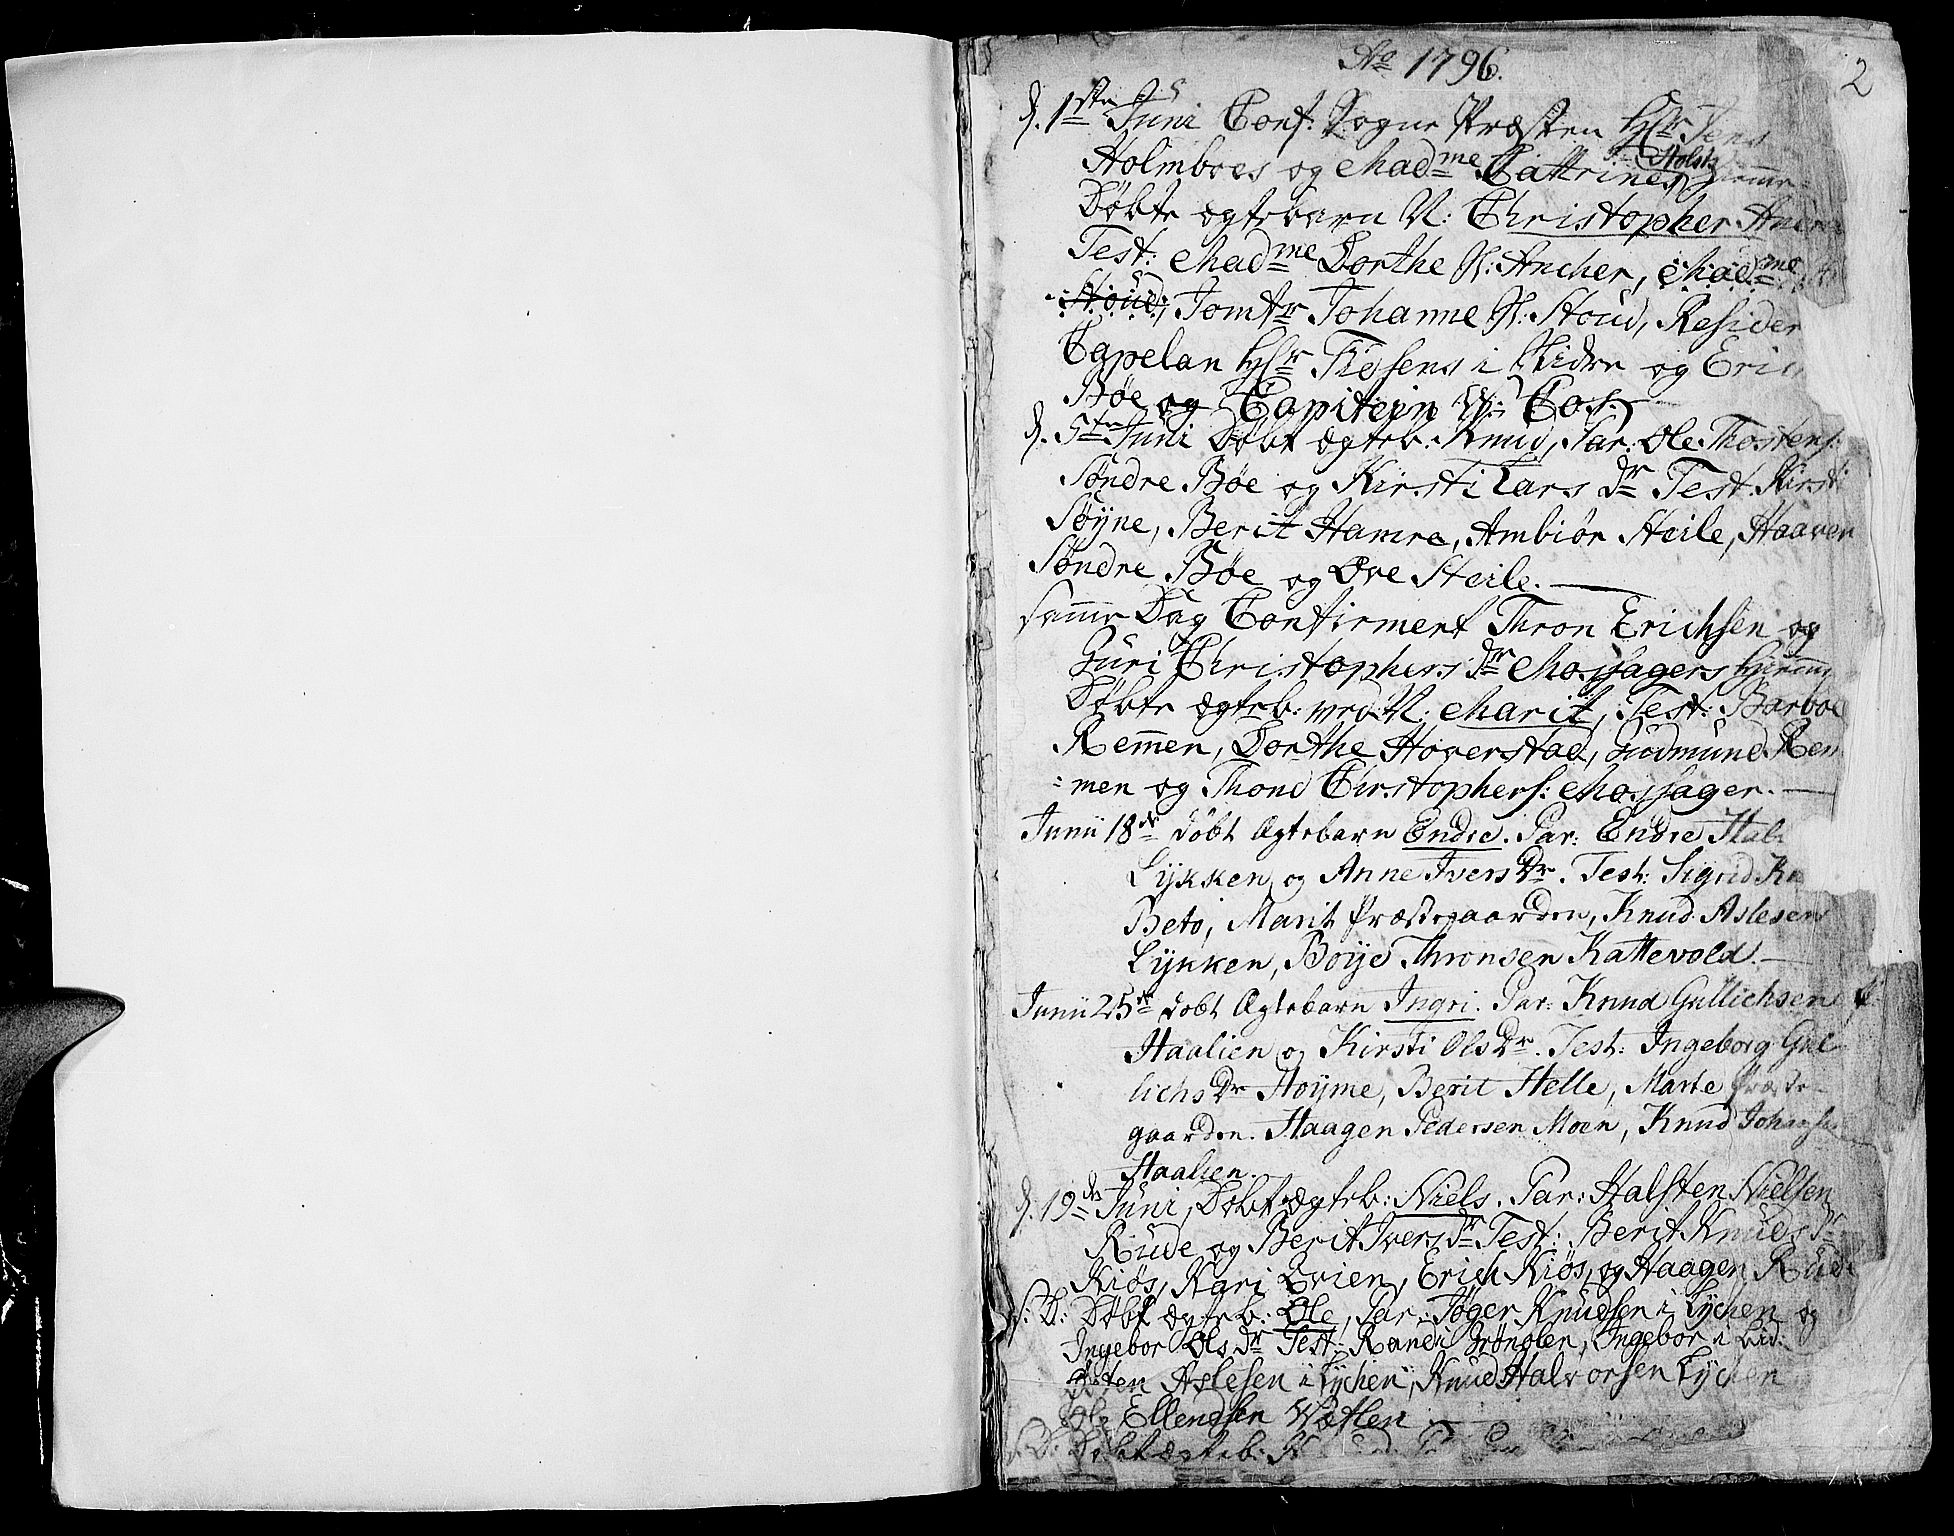 Ao 1796.
2
d. 1ste Juni Conf: Sogne Præsten Hr Jens
Holmboes og Madme Cathrines f. Holst hiemme-
Døbte ægtebarn N: Christopher
Test: Madme Dorthe S: Ancher, Madme
Stoud, Jomfr Johanne S: Stoud, Resider
Capelan Hr Tiesens i Slidre og Eric
Bøe og Capitein W: Cos:
d. 5te Juni Døbt ægteb: Knud, Par: Ole Thostens:
Søndre Bøe og Kirsti Lars Dr Test. Kirsti
Søyne, Berit Hamre, Ambiør Steile, Haaver
Søndre Bøe og Ove Steile.
samme Dag Confirmert Thron Erichsen og
Guri Christophers dr Mosjagers hiemme
Døbte ægteb: ved N: Marit, Test: Barboe
Remen, Dorthe Hoverstad, Gudmund Rem
=men og Thond Chirstophers: Mosjager.
Junii 18de døbt Ægtebarn Endre. Par: Endre Hal
Lykken og Anne IversDr. Test: Sigrid
Beto, Marit Præstegaarden, Knud Aslesen
Lykken, Boye Thronsen Kattevold.
Junii 25de døbt Ægtebarn Ingri. Par: Knud Gullichsen
Haalien og Kirsti OlsDr. Test: Ingeborg Gul
lichsDr Høyme, Berit Helle, Marte Præste-
gaarden. Haagen Pedersen Moen, Knud Johans
Haalien.
d. 19de Juni, Døbt ægteb: Niels. Par: Halsten Nielsen
Rude og Berit Ivers dr Test: Berit Knuds dr
Kiøs, Kari Evien, Erich Kiøs, og Haagen Rude
S. D: Døbt ægteb: Ole, Par: Tøger Knudsen i Lychen og
Ingebor Ols dr Test: Randi Grønolen, Ingebor i Lid:
Aslesen i Lychen, Knud Halvorsen Lychen
Ole Ellendsen Wætlen
S. D: Døbt ægteb: